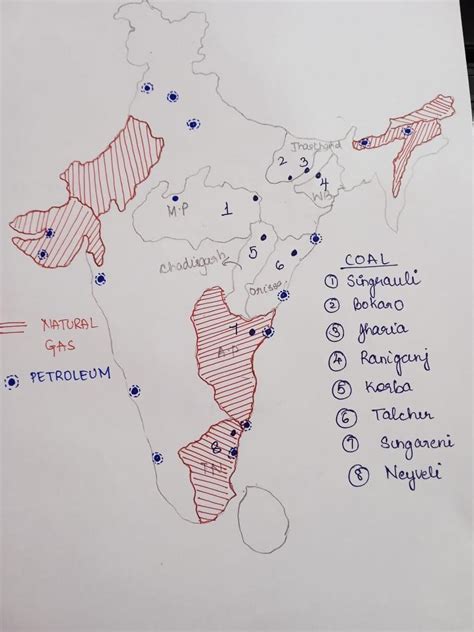 Jharkhand
2 3
4
WB
M.P 1
5
Chadisgarh
6
Orrissa
7
A.P
8
T.N
NATURAL
GAS
PETROLEUM
COAL
1 Singrauli
2 Bokaro
3 Jharia
4 Raniganj
5 Korba
6 Talcher
7 Singareni
8 Neyveli